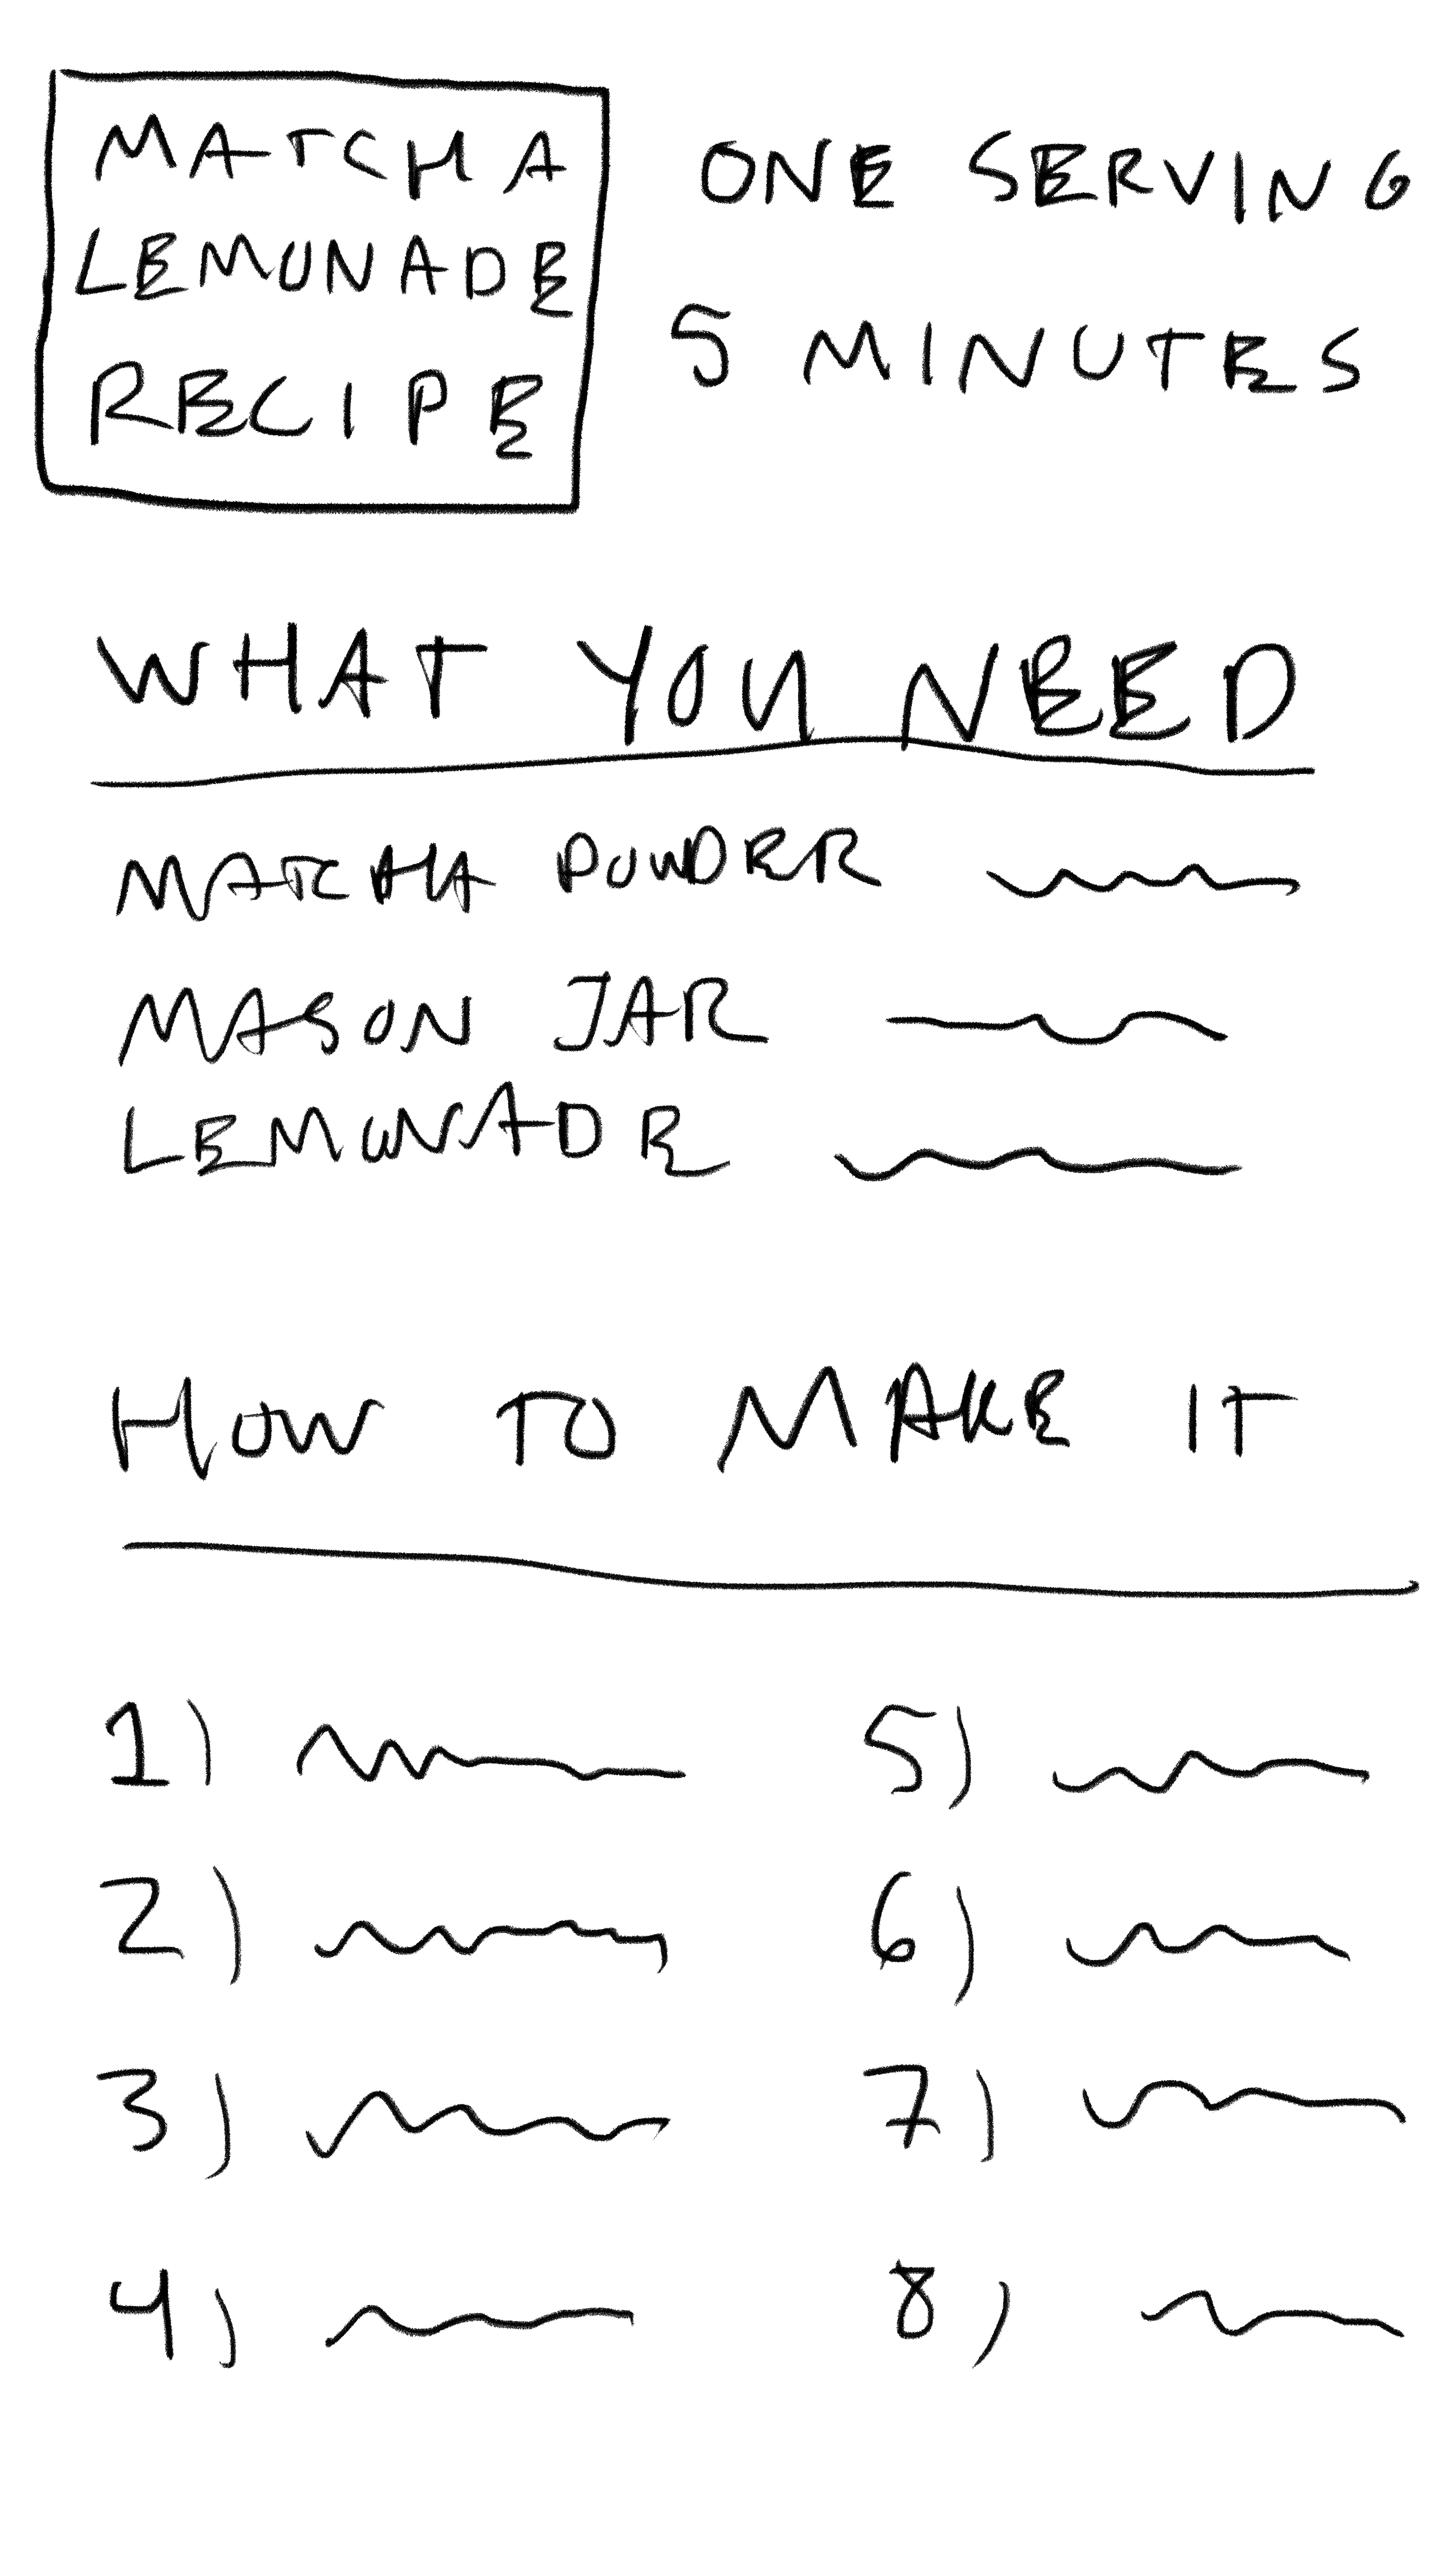 MATCHA
LEMONADE
RECIPE
ONE SERVING
5 MINUTES
WHAT YOU NEED
MATCHA POWDER
MASON JAR
LEMONADE
HOW TO MAKE IT
1)
2)
3)
4)
5)
6)
7)
8)